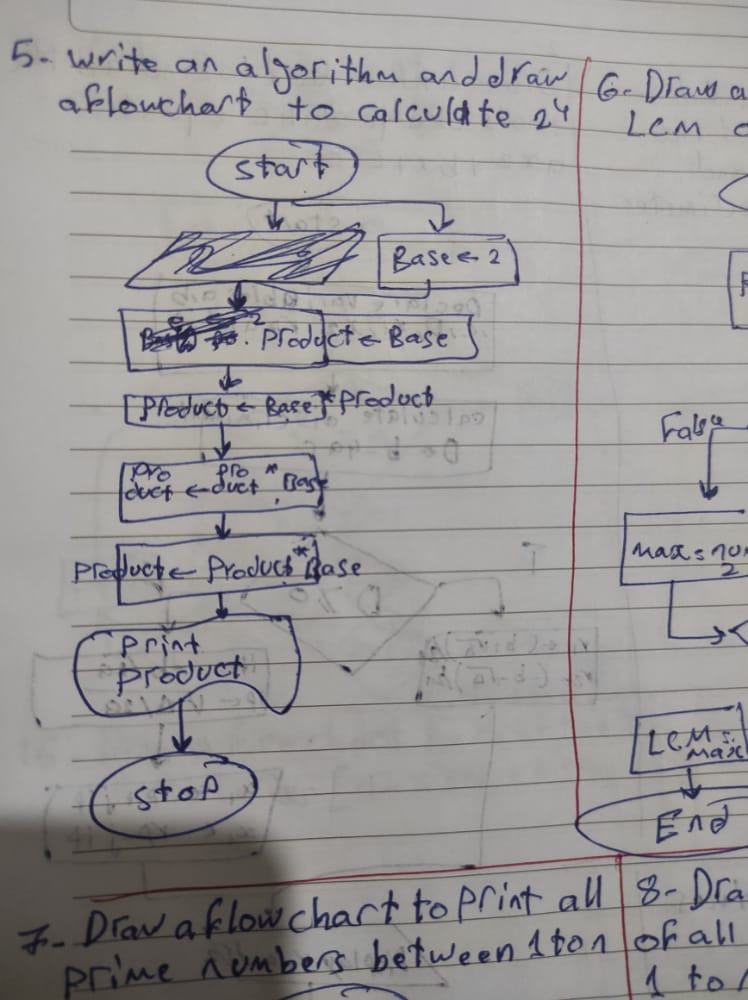 5- write an algorithm and draw
a flowchart to calculate 2⁴
start
Base ← 2
Product ← Base
Product ← Base * product
Pro pro *
duct ← duct Base
Product ← Product * Base
print
product
stop
6- Draw a
LCM
False
max = num
2
LCM =
max
End
7- Draw a flowchart to print all
prime numbers between 1 to n
8- Dra
of all
1 to